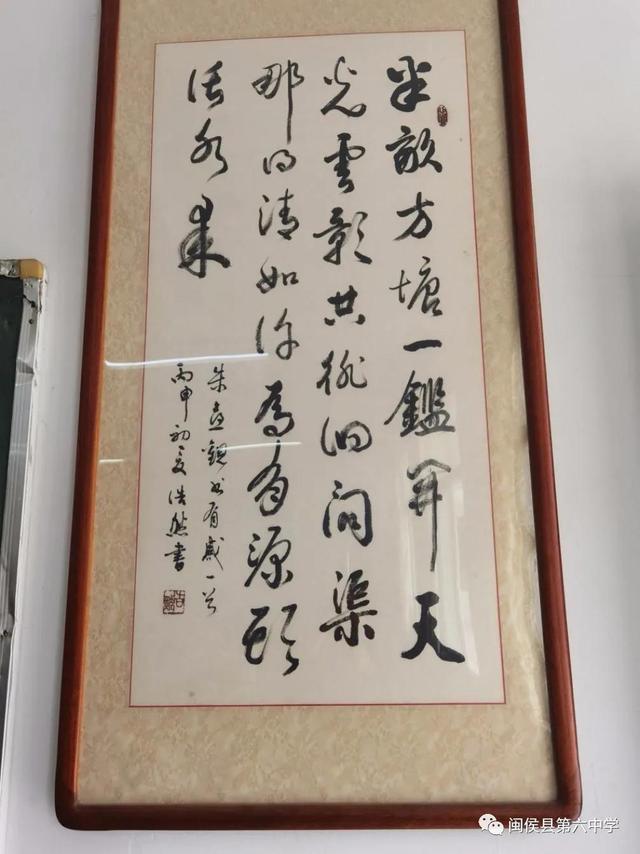 半畝方塘一鑑開天
光雲影共徘徊問渠
那得清如許為有源頭
活水來
朱熹觀書有感一首
丙申初夏浩然書
闽侯县第六中学